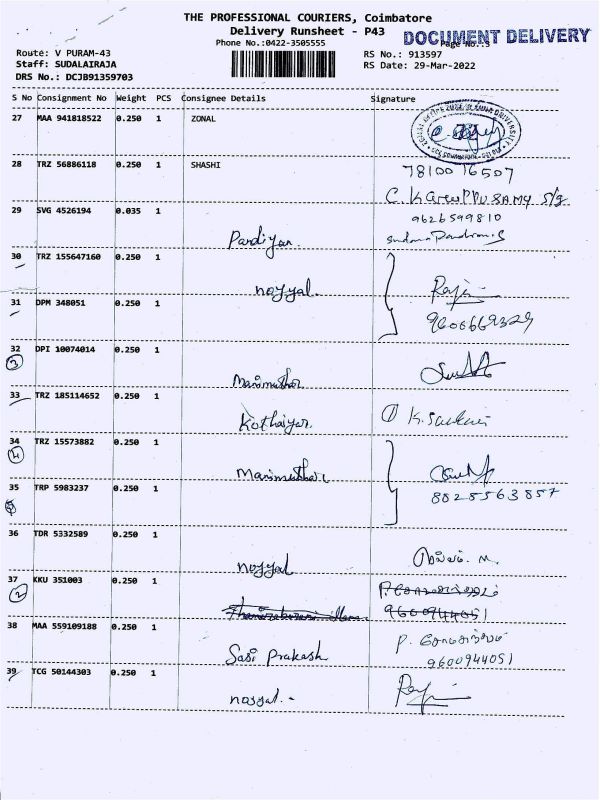 THE PROFESSIONAL COURIERS, Coimbatore
Delivery Runsheet - P43
DOCUMENT DELIVERY
Phone No.:0422-3505555
Page No.:3
Route: V PURAM-43
RS No.: 913597
Staff: SUDALAIRAJA
RS Date: 29-Mar-2022
DRS No.: DCJB91359703
S No Consignment No Weight PCS Consignee Details Signature
27 MAA 941818522 0.250 1 ZONAL
28 TRZ 56886118 0.250 1 SHASHI
7810016507
C. KARUPPUSAMY S/g
29 SVG 4526194 0.035 1
9626599810
Pandiyan
30 TRZ 155647160 0.250 1
noyyal
Raji
31 DPM 348051 0.250 1
9600669329
32 DPI 10074014 0.250 1
3
Marimuthu
33 TRZ 185114652 0.250 1
Kothaiyar
34 TRZ 15573882 0.250 1
4
Marimuthu
35 TRP 5983237 0.250 1
8825563857
5
36 TDR 5332589 0.250 1
noyyal
37 KKU 351003 0.250 1
2
9600944051
38 MAA 559109188 0.250 1
Sasi Prakash
9600944051
39 TCG 50144303 0.250 1
noyyal -
Raji